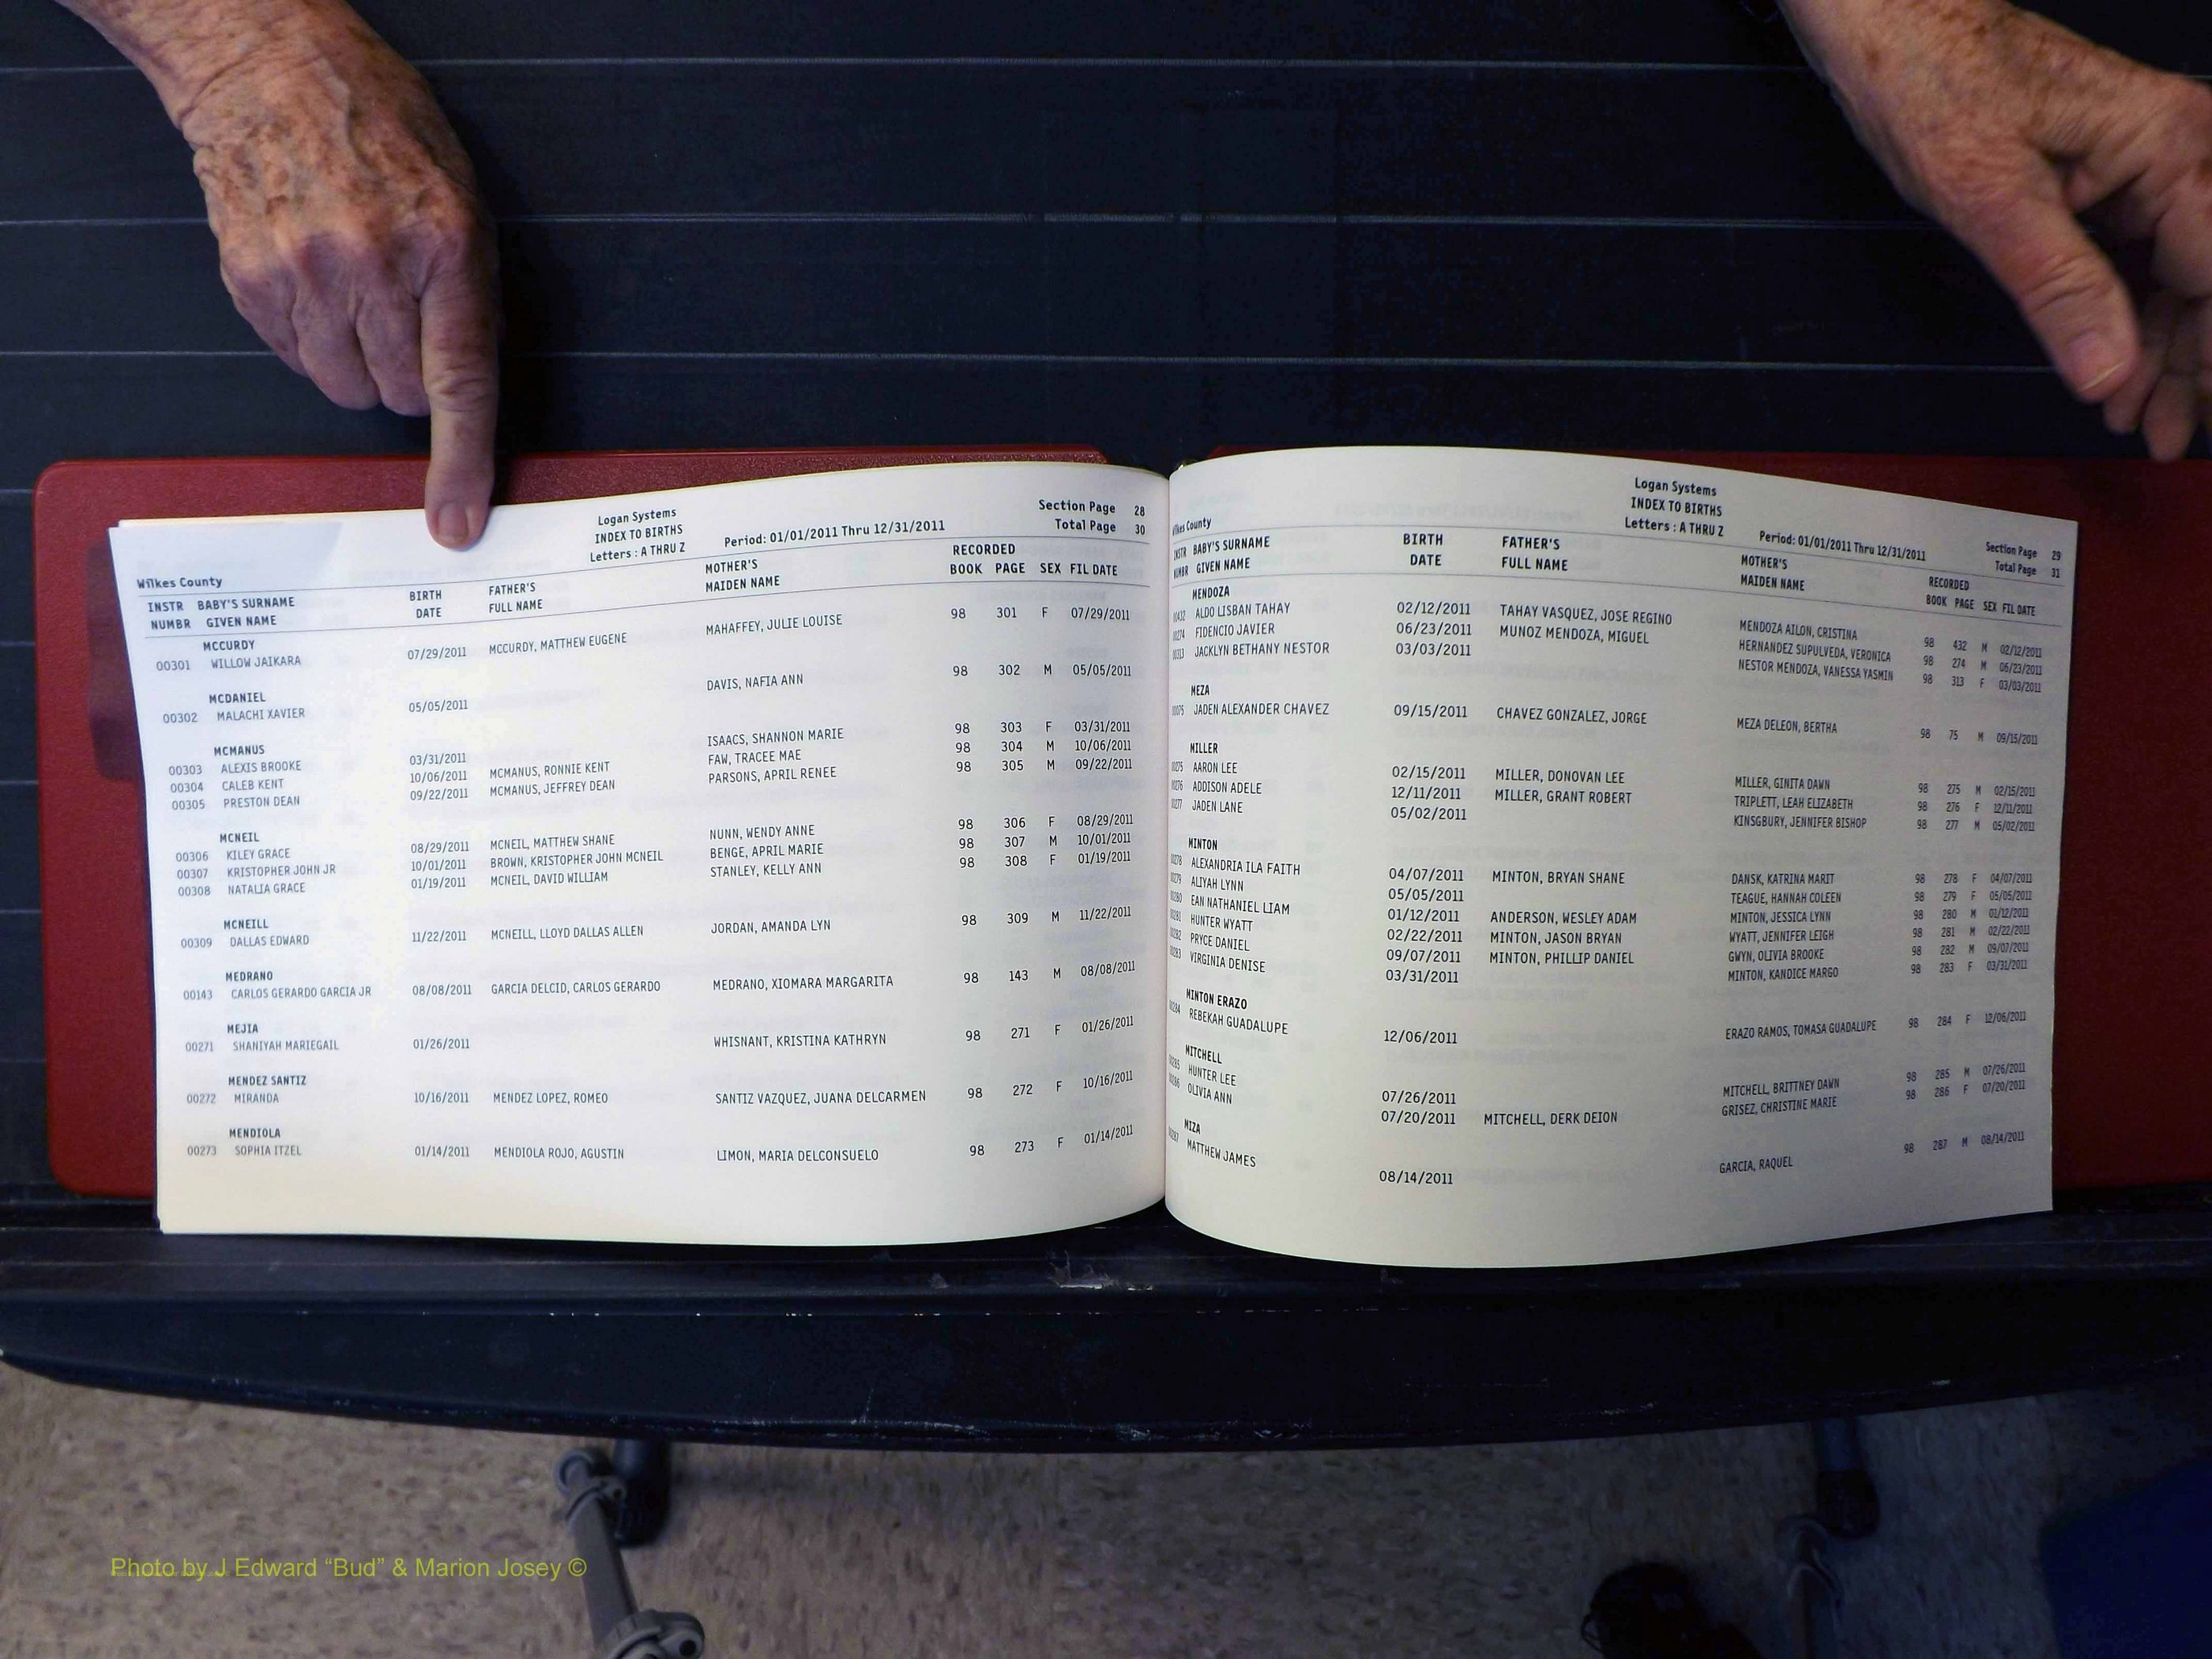 Logan Systems
INDEX TO BIRTHS
Letters : A THRU Z
Period: 01/01/2011 Thru 12/31/2011
Section Page 28
Total Page 30
Wilkes County
INSTR BABY'S SURNAME BIRTH FATHER'S MOTHER'S RECORDED
NUMBR GIVEN NAME DATE FULL NAME MAIDEN NAME BOOK PAGE SEX FIL DATE
MCCURDY
00301 WILLOW JAIKARA 07/29/2011 MCCURDY, MATTHEW EUGENE MAHAFFEY, JULIE LOUISE 98 301 F 07/29/2011
MCDANIEL
00302 MALACHI XAVIER 05/05/2011 DAVIS, NAFIA ANN 98 302 M 05/05/2011
MCMANUS
00303 ALEXIS BROOKE 03/31/2011 ISAACS, SHANNON MARIE 98 303 F 03/31/2011
00304 CALEB KENT 10/06/2011 MCMANUS, RONNIE KENT FAW, TRACEE MAE 98 304 M 10/06/2011
00305 PRESTON DEAN 09/22/2011 MCMANUS, JEFFREY DEAN PARSONS, APRIL RENEE 98 305 M 09/22/2011
MCNEIL
00306 KILEY GRACE 08/29/2011 MCNEIL, MATTHEW SHANE NUNN, WENDY ANNE 98 306 F 08/29/2011
00307 KRISTOPHER JOHN JR 10/01/2011 BROWN, KRISTOPHER JOHN MCNEIL BENGE, APRIL MARIE 98 307 M 10/01/2011
00308 NATALIA GRACE 01/19/2011 MCNEIL, DAVID WILLIAM STANLEY, KELLY ANN 98 308 F 01/19/2011
MCNEILL
00309 DALLAS EDWARD 11/22/2011 MCNEILL, LLOYD DALLAS ALLEN JORDAN, AMANDA LYN 98 309 M 11/22/2011
MEDRANO
00143 CARLOS GERARDO GARCIA JR 08/08/2011 GARCIA DELCID, CARLOS GERARDO MEDRANO, XIOMARA MARGARITA 98 143 M 08/08/2011
MEJIA
00271 SHANIYAH MARIEGAIL 01/26/2011 WHISNANT, KRISTINA KATHRYN 98 271 F 01/26/2011
MENDEZ SANTIZ
00272 MIRANDA 10/16/2011 MENDEZ LOPEZ, ROMEO SANTIZ VAZQUEZ, JUANA DELCARMEN 98 272 F 10/16/2011
MENDIOLA
00273 SOPHIA ITZEL 01/14/2011 MENDIOLA ROJO, AGUSTIN LIMON, MARIA DELCONSUELO 98 273 F 01/14/2011
Logan Systems
INDEX TO BIRTHS
Letters : A THRU Z
Period: 01/01/2011 Thru 12/31/2011
Section Page 29
Total Page 31
County
BABY'S SURNAME BIRTH FATHER'S MOTHER'S RECORDED
GIVEN NAME DATE FULL NAME MAIDEN NAME BOOK PAGE SEX FIL DATE
MENDOZA
ALDO LISBAN TAHAY 02/12/2011 TAHAY VASQUEZ, JOSE REGINO MENDOZA AILON, CRISTINA 98 432 M 02/12/2011
FIDENCIO JAVIER 06/23/2011 MUNOZ MENDOZA, MIGUEL HERNANDEZ SUPULVEDA, VERONICA 98 274 M 06/23/2011
JACKLYN BETHANY NESTOR 03/03/2011 NESTOR MENDOZA, VANESSA YASMIN 98 313 F 03/03/2011
MEZA
JADEN ALEXANDER CHAVEZ 09/15/2011 CHAVEZ GONZALEZ, JORGE MEZA DELEON, BERTHA 98 75 M 09/15/2011
MILLER
AARON LEE 02/15/2011 MILLER, DONOVAN LEE MILLER, GINITA DAWN 98 275 M 02/15/2011
ADDISON ADELE 12/11/2011 MILLER, GRANT ROBERT TRIPLETT, LEAH ELIZABETH 98 276 F 12/11/2011
JADEN LANE 05/02/2011 KINSGBURY, JENNIFER BISHOP 98 277 M 05/02/2011
MINTON
ALEXANDRIA ILA FAITH 04/07/2011 MINTON, BRYAN SHANE DANSK, KATRINA MARIT 98 278 F 04/07/2011
ALIYAH LYNN 05/05/2011 TEAGUE, HANNAH COLEEN 98 279 F 05/05/2011
EAN NATHANIEL LIAM 01/12/2011 ANDERSON, WESLEY ADAM MINTON, JESSICA LYNN 98 280 M 01/12/2011
HUNTER WYATT 02/22/2011 MINTON, JASON BRYAN WYATT, JENNIFER LEIGH 98 281 M 02/22/2011
PRYCE DANIEL 09/07/2011 MINTON, PHILLIP DANIEL GWYN, OLIVIA BROOKE 98 282 M 09/07/2011
VIRGINIA DENISE 03/31/2011 MINTON, KANDICE MARGO 98 283 F 03/31/2011
MINTON ERAZO
REBEKAH GUADALUPE 12/06/2011 ERAZO RAMOS, TOMASA GUADALUPE 98 284 F 12/06/2011
MITCHELL
HUNTER LEE 07/26/2011 MITCHELL, BRITTNEY DAWN 98 285 M 07/26/2011
OLIVIA ANN 07/20/2011 MITCHELL, DERK DEION GRISEZ, CHRISTINE MARIE 98 286 F 07/20/2011
MIZA
MATTHEW JAMES 08/14/2011 GARCIA, RAQUEL 98 287 M 08/14/2011
Photo by J Edward “Bud” & Marion Josey ©